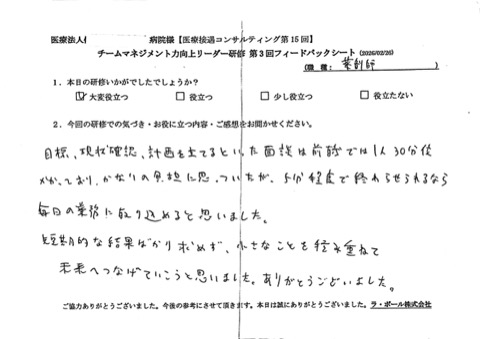 医療法人 病院様【医療接遇コンサルティング第15回】
チームマネジメント力向上リーダー研修 第3回フィードバックシート (2026/02/26)
(職 種: 薬剤師 )
1．本日の研修いかがでしたでしょうか？
☑ 大変役立つ □ 役立つ □ 少し役立つ □ 役立たない
2．今回の研修での気づき・お役に立つ内容・ご感想をお聞かせください。
目標、現状確認、計画を立てるといった面談は前職では1人30分位
かかっており、かなりの負担に思っていたが、5分程度で終わらせられるなら
毎日の業務に取り込めると思いました。
短期的な結果ばかり求めず、小さなことを積み重ねて
未来へつなげていこうと思いました。ありがとうございました。
ご協力ありがとうございました。今後の参考にさせて頂きます。本日は誠にありがとうございました。ラ・ポール株式会社